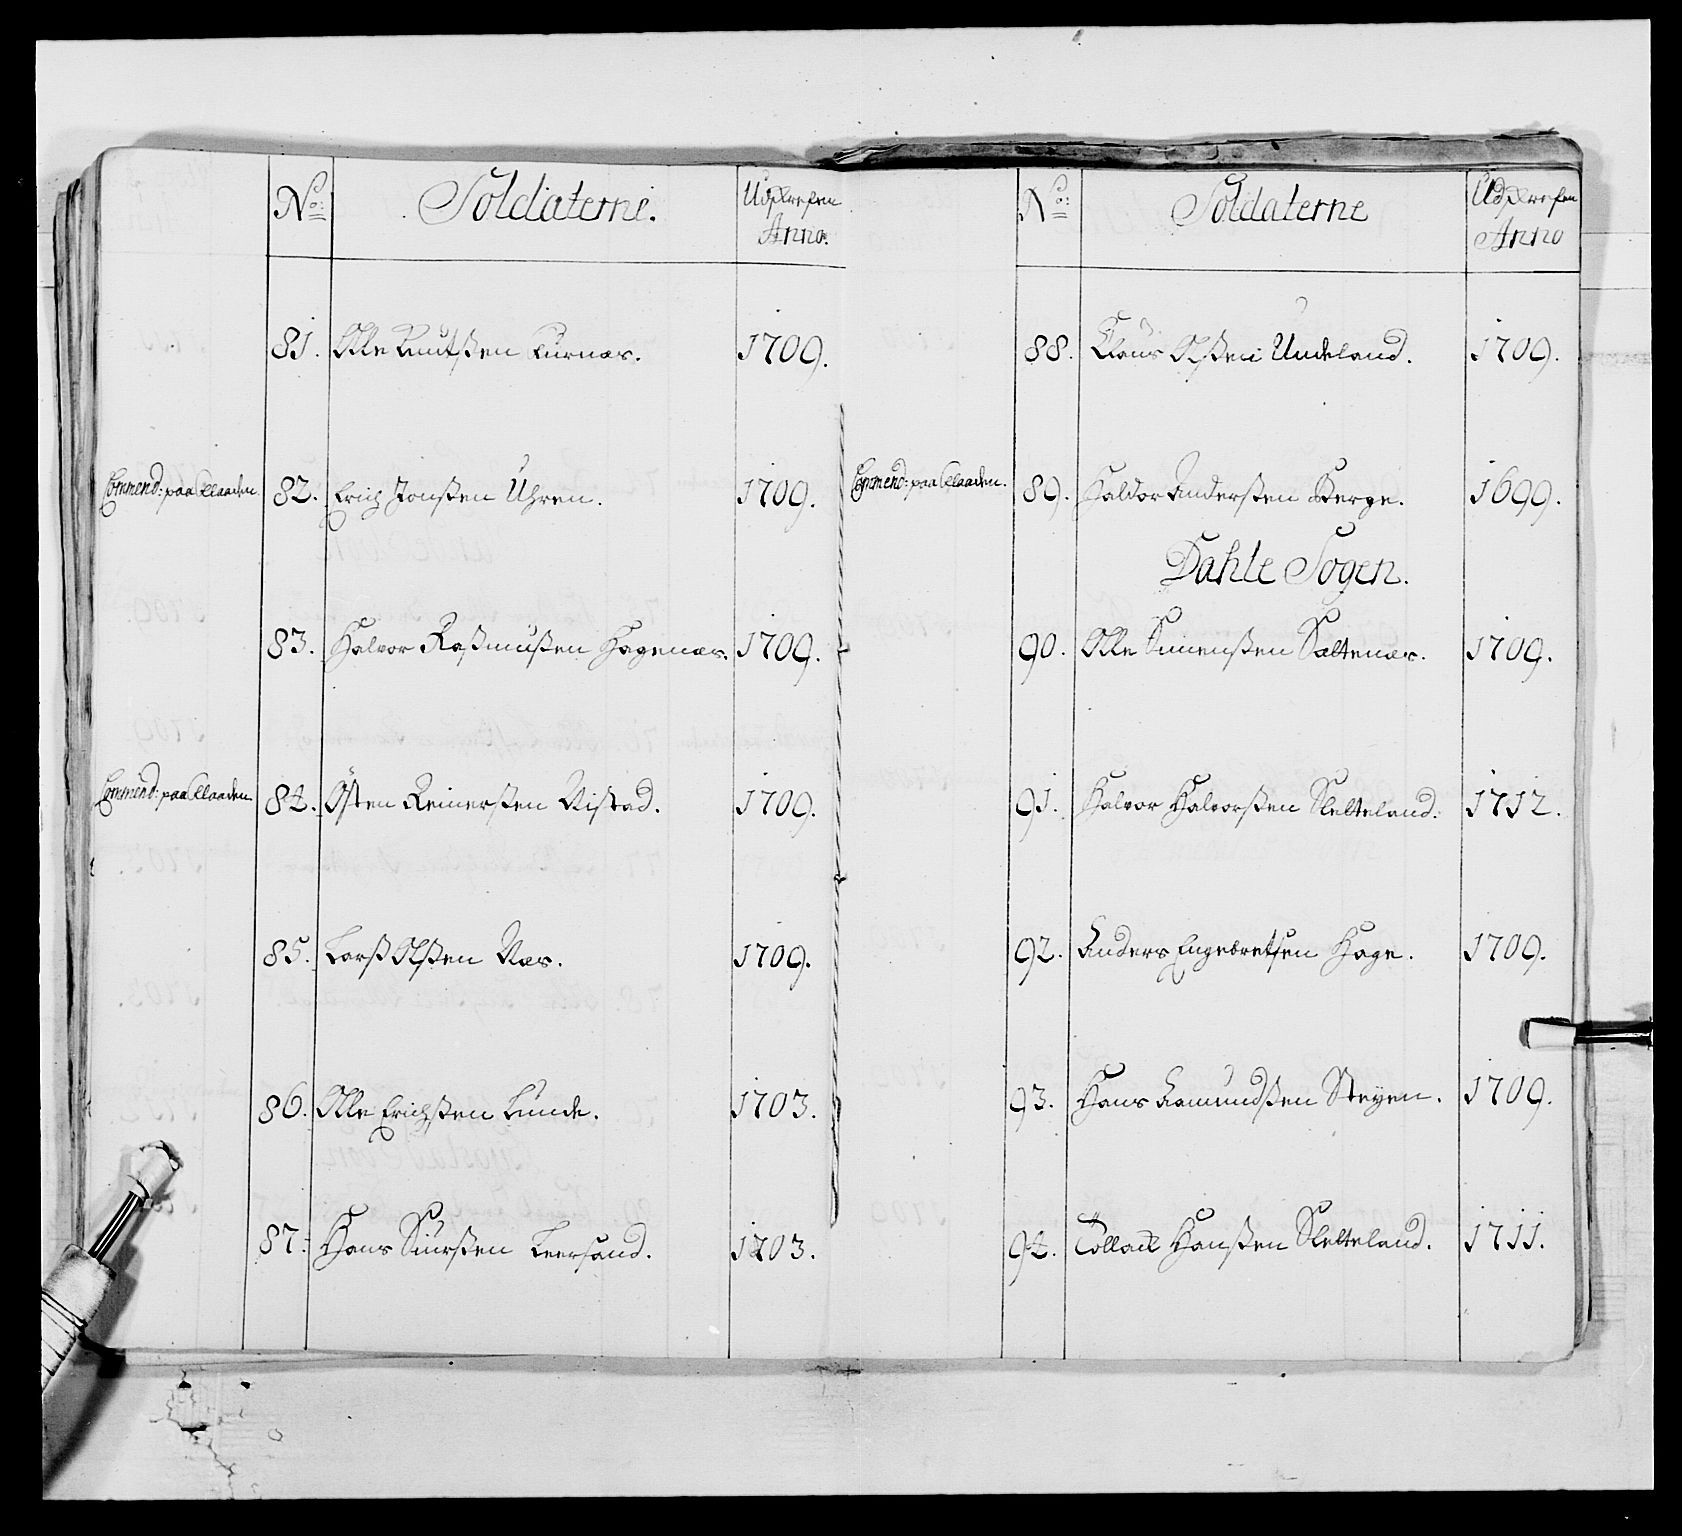 No: Soldaterne. Udskrefen Anno.
81. Olle Knutßen Turnæs. 1709.
Commend: paa Flaaden. 82. Erich Jonßen Uhren. 1709.
83. Halvor Raßmußen Hagenæs. 1709.
Commend: paa Flaaden 84. Østen Reinerßen Nistad. 1709.
85. Larß Olßen Næs. 1709.
86. Olle Erichßen Lunde. 1703.
87. Hans Siurßen Leersand. 1703.
No: Soldaterne Udskrefen Anno
88. Claus Olßen Undeland. 1709.
Commend: paa Flaaden. 89. Haldor Anderßen Berge. 1699.
Dahle Sogen.
90. Olle Simenßen Saltenæs. 1709.
91. Halvor Halvorßen Sletteland. 1712.
92. Anders Engebretsen Hage. 1709.
93. Hans Aamundßen Steyen. 1709.
94. Tollack Hanßen Sletteland. 1711.